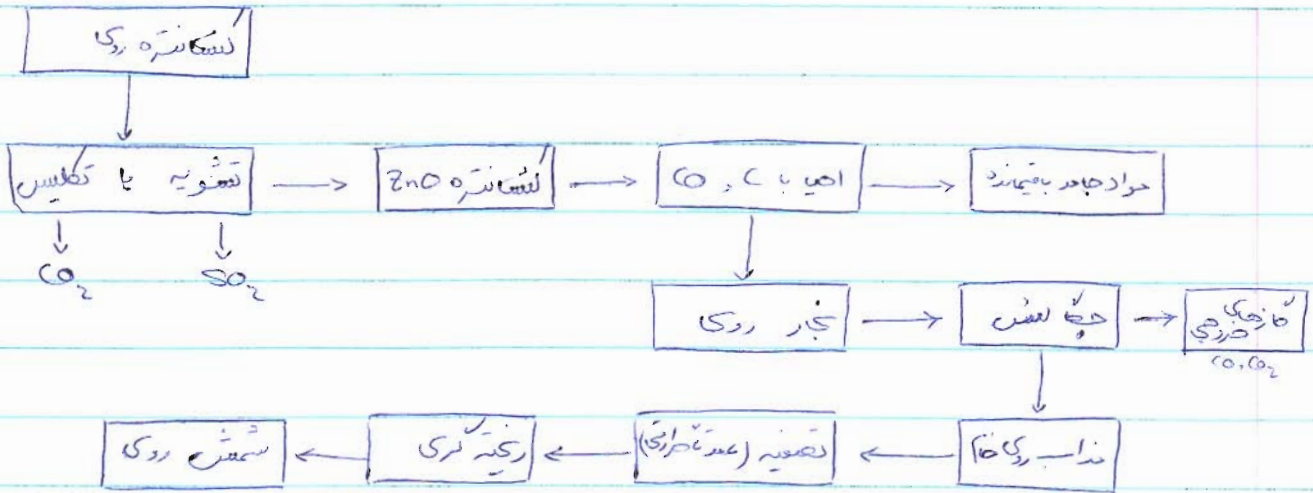 کنسانتره روی
تشویه یا تکلیس
کنسانتره ZnO
احیا با C و CO
مواد جامد باقیمانده
CO2
SO2
بخار روی
چگالش
گازهای خروجی
CO, CO2
مذاب روی خام
تصفیه (عمدتاً حرارتی)
ریخته گری
شمش روی